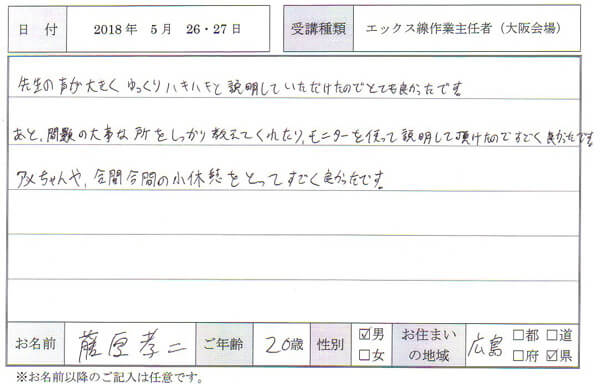 日 付 2018年 5月 26・27日 受講種類 エックス線作業主任者（大阪会場）
先生の声が大きく ゆっくりハキハキと説明していただけたのでとても良かったです
あと、問題の大事な所をしっかり教えてくれたり、モニターを使って説明して頂けたのですごく良かったです
アメちゃんや、合間合間の小休憩をとってすごく良かったです
お名前 藤原孝二 ご年齢 20歳 性別 ☑男 □女 お住まいの地域 広島 □都 □道 □府 ☑県
※お名前以降のご記入は任意です。